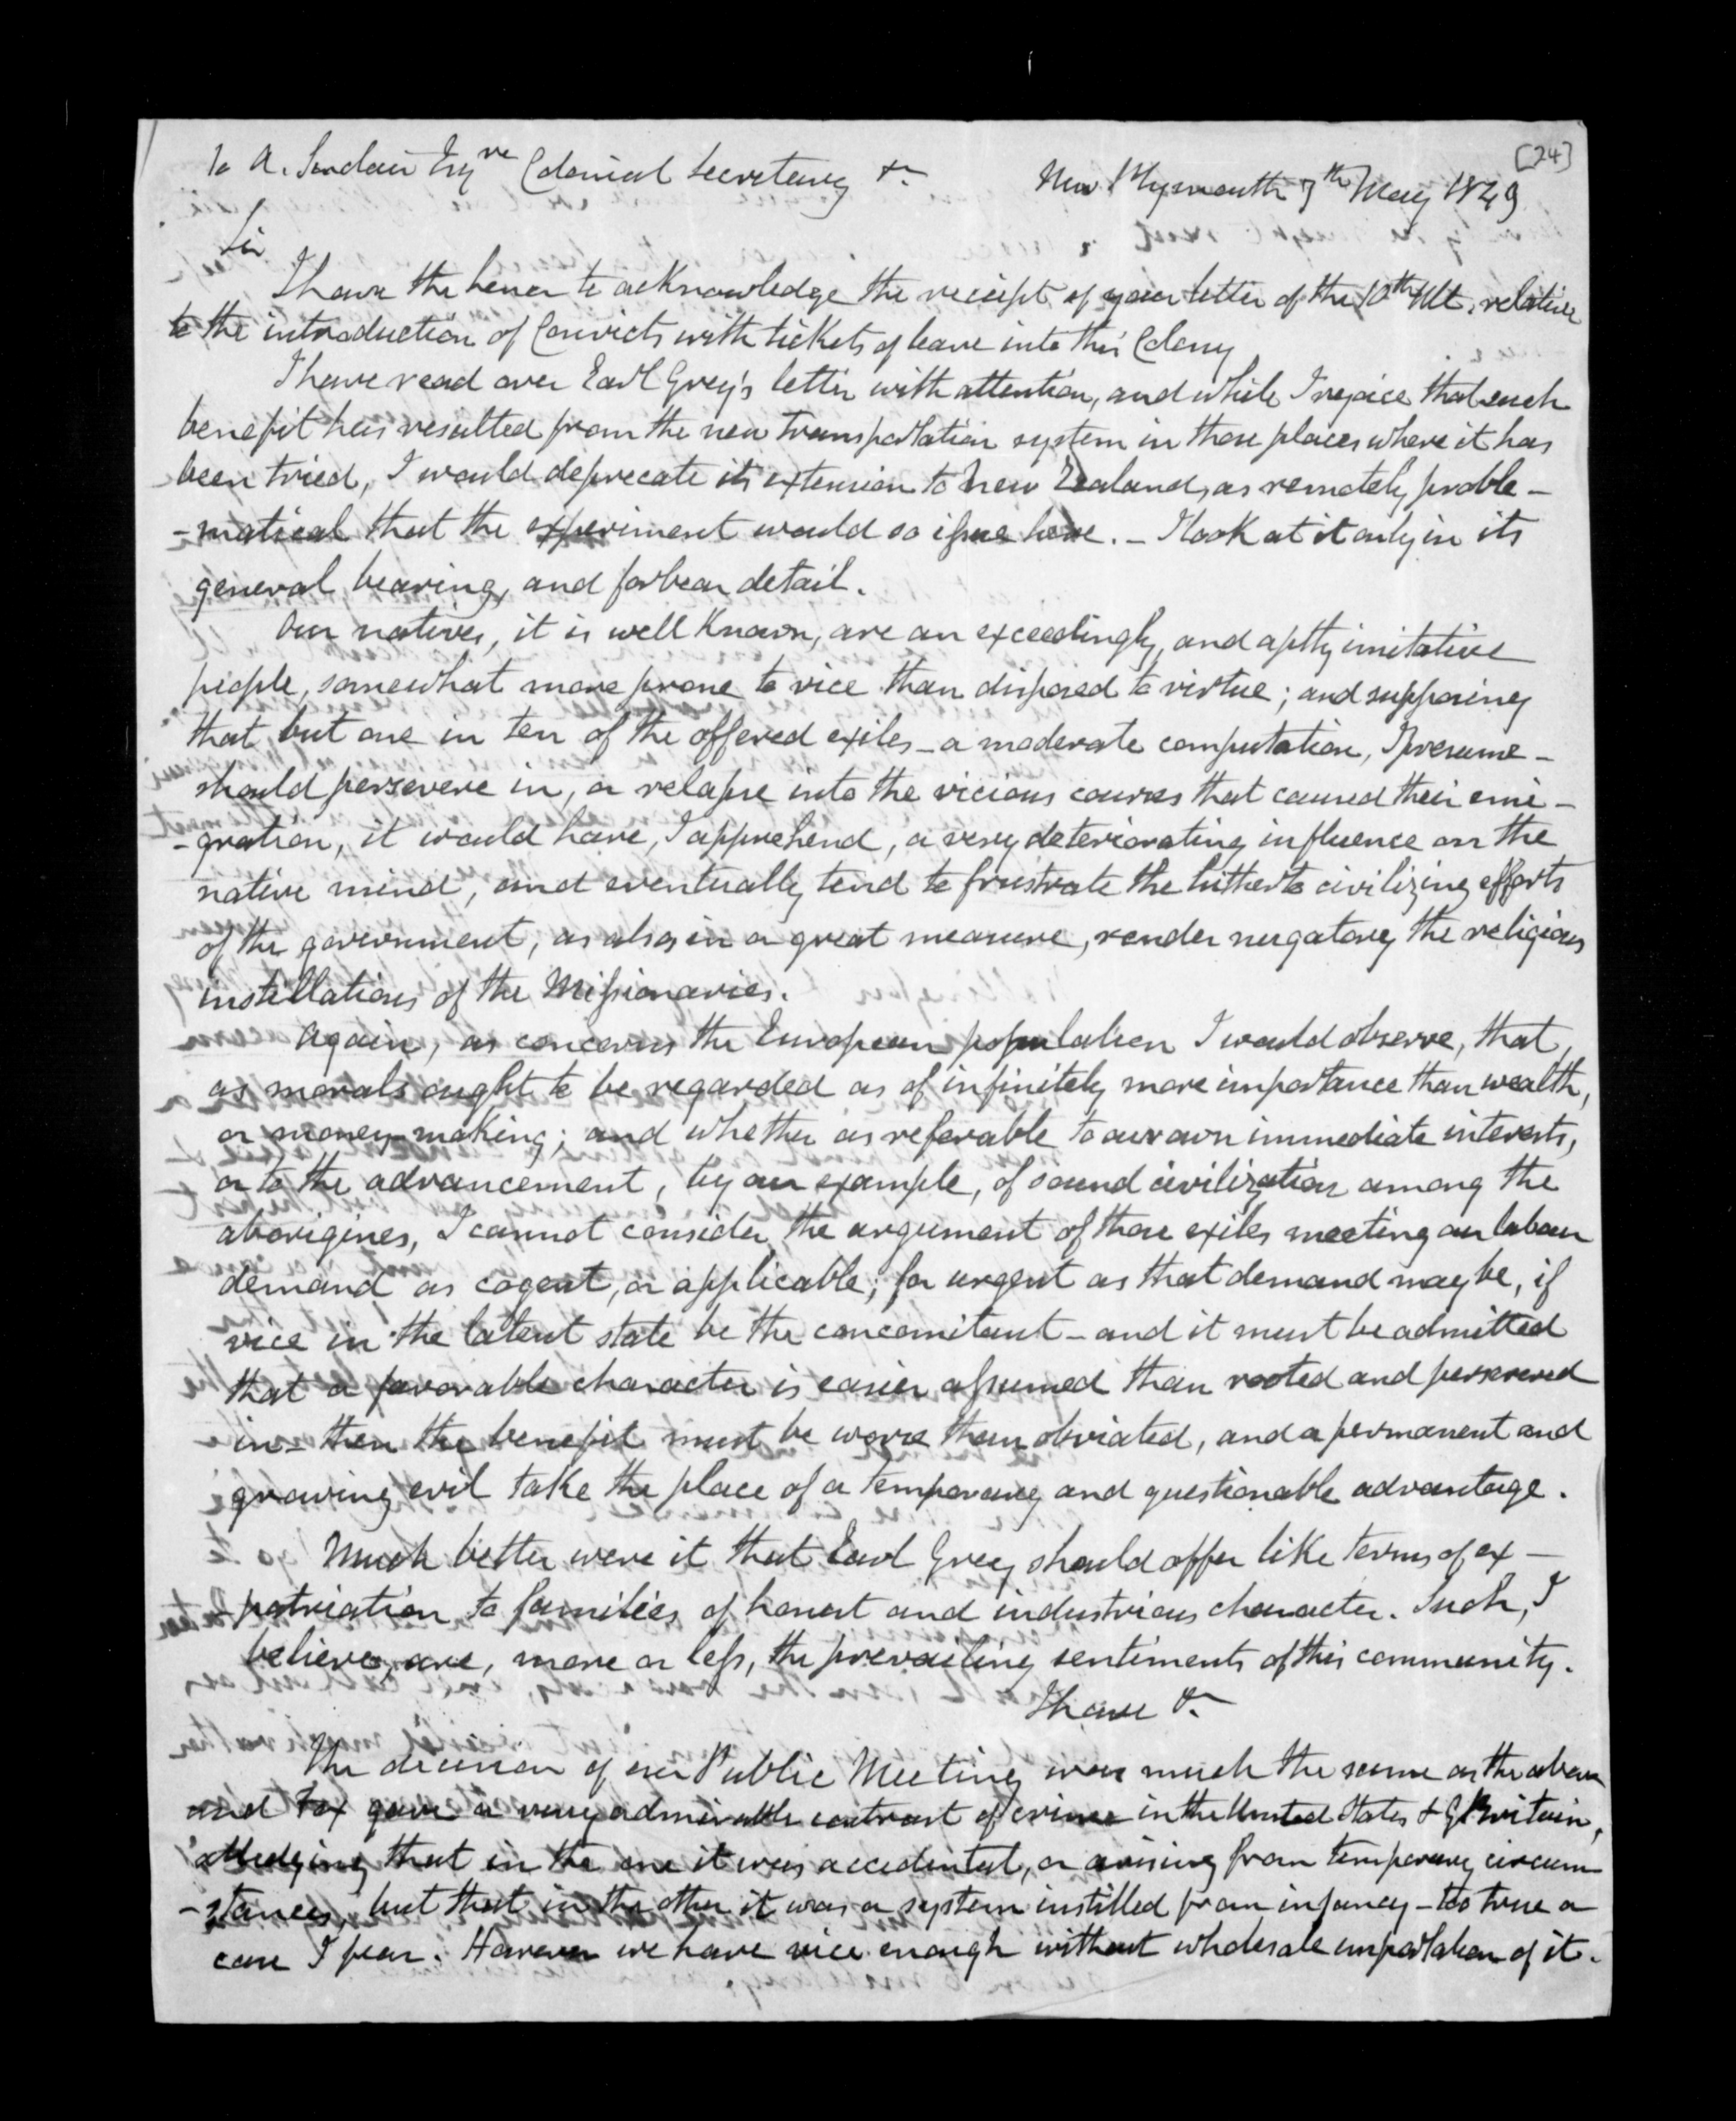 [24]
To A. Sinclair Esqre Colonial Secretary &c. New Plymouth 7th May 1849
Sir
I have the honor to acknowledge the receipt of your letter of the 10th Ult. relative
to the introduction of Convicts with tickets of leave into this Colony
I have read over Earl Grey's letter with attention, and while I rejoice that such
benefit has resulted from the new transportation system in those places where it has
been tried, I would deprecate its extension to New Zealand, as remotely proble-
-matical that the experiment would so issue here. - I look at it only in its
general bearing, and forbear detail.
Our natives, it is well known, are an exceedingly, and aptly imitative
people, somewhat more prone to vice than disposed to virtue; and supposing
that but one in ten of the offered exiles - a moderate computation, I presume -
should persevere in, or relapse into the vicious courses that caused their emi-
-gration, it would have, I apprehend, a very deteriorating influence on the
native mind, and eventually tend to frustrate the hitherto civilizing efforts
of the government, as also, in a great measure, render nugatory the religious
instillations of the Missionaries.
Again, as concerns the European population I would observe, that,
as morals ought to be regarded as of infinitely more importance than wealth,
or money-making; and whether as referable to our own immediate interests,
or to the advancement, by our example, of sound civilization among the
aborigines, I cannot consider the argument of those exiles meeting our labour
demand as cogent, or applicable; for urgent as that demand may be, if
vice in the latent state be the concomitant - and it must be admitted
that a favorable character is easier assumed than rooted and persevered
in - then the benefit must be worse than obviated, and a permanent and
growing evil take the place of a temporary and questionable advantage.
Much better were it that Earl Grey should offer like terms of ex-
-patriation to families of honest and industrious character. Such, I
believe, are, more or less, the prevailing sentiments of this community.
I have &c.
The decision of our Public Meeting was much the same as the above
and Fox gave a very admirable contrast of crime in the United States & G Britain,
alledging that in the one it was accidental, or arising from temporary circum-
-stances, but that in the other it was a system instilled from infancy - too true a
case I fear. However we have vice enough without wholesale importation of it.